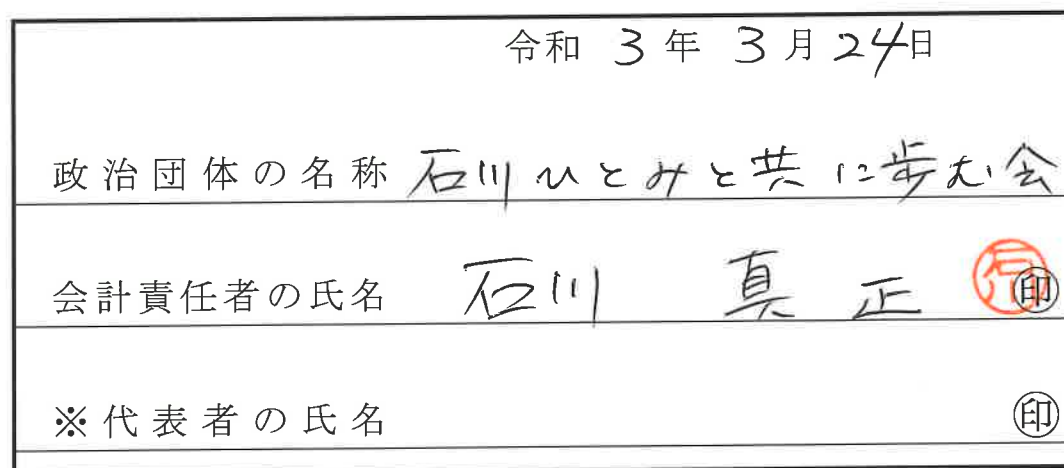 令和 3 年 3 月 24日
政治団体の名称 石川ひとみと共に歩む会
会計責任者の氏名 石川 真正 ㊞
※代表者の氏名 ㊞